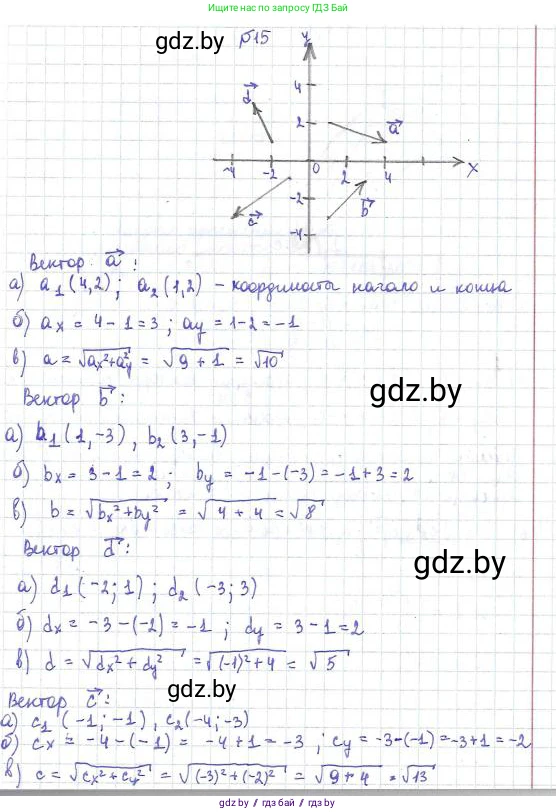 Ищите нас по запросу ГДЗ Бай
gdz.by №15 y
4
2
-4 -2 0 2 4 x
-2
-4
a
b
c
d
Вектор a:
а) a₁(4,2); a₂(1,2) - координаты начало и конца
б) ax = 4-1=3; ay = 1-2=-1
в) a = √ax²+ay² = √9+1 = √10
gdz.by
Вектор b:
а) b₁(1,-3), b₂(3,-1)
б) bx = 3-1=2; by = -1-(-3)=-1+3=2
в) b = √bx²+by² = √4+4 = √8
Вектор d:
gdz.by
а) d₁(-2; 1); d₂(-3; 3)
б) dx = -3-(-2) = -1; dy = 3-1=2
в) d = √dx²+dy² = √(-1)²+4 = √5
gdz.by
Вектор c:
а) c₁(-1; -1), c₂(-4;-3)
б) cx = -4-(-1) = -4+1 = -3; cy = -3-(-1)=-3+1=-2
в) c = √cx²+cy² = √(-3)²+(-2)² = √9+4 = √13
gdz.by / гдз.бай / гдз.by